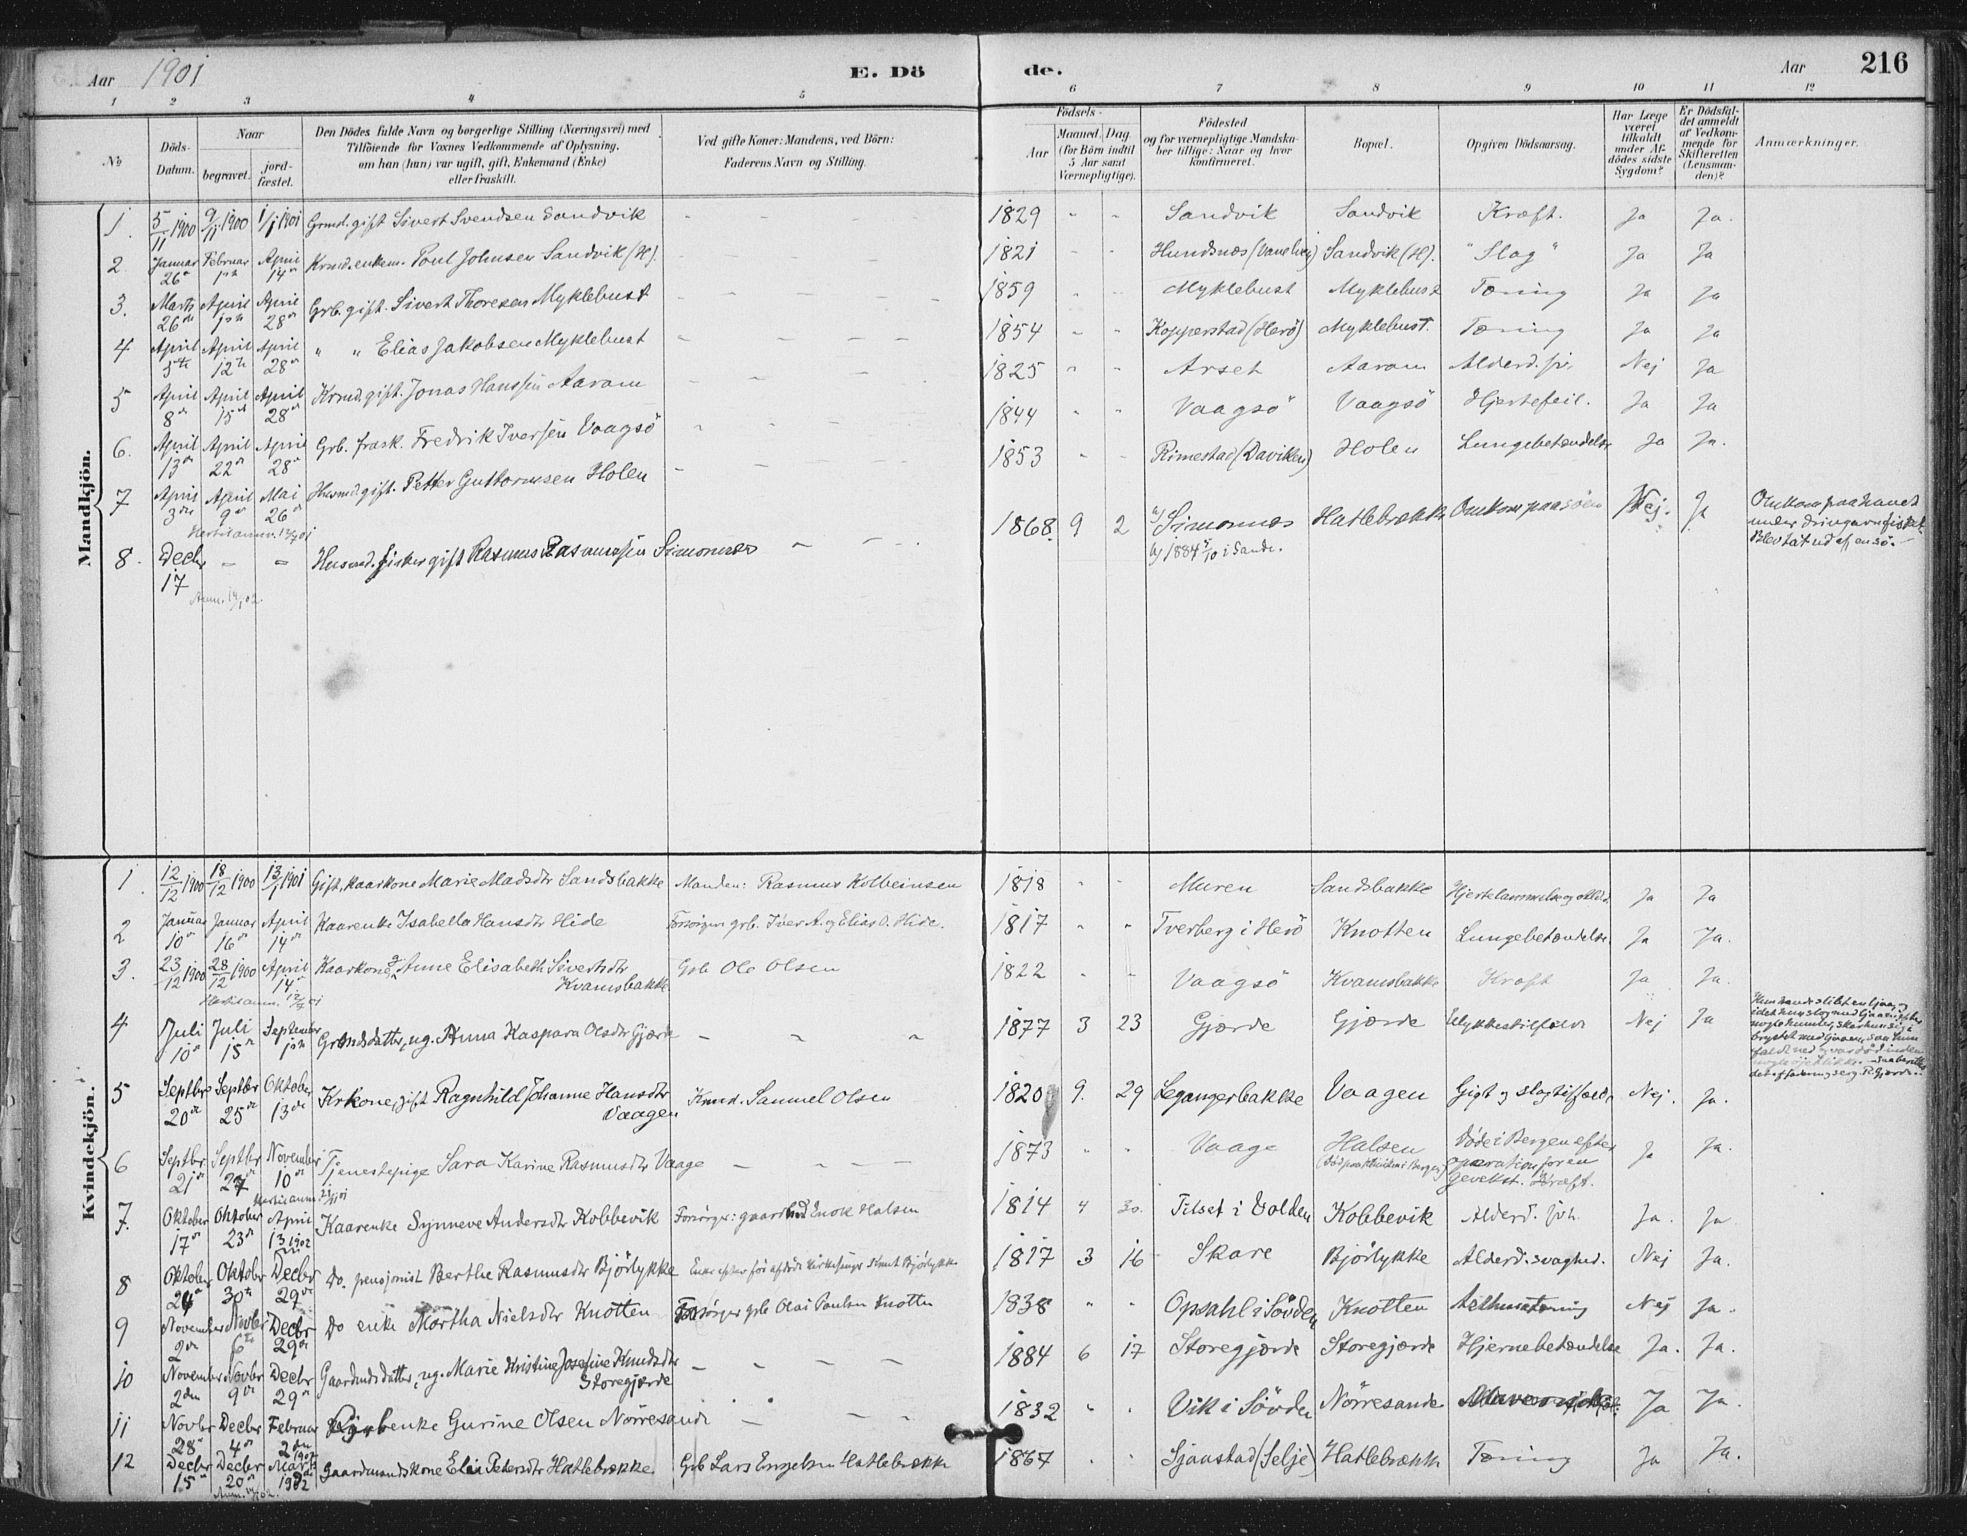 Aar 1901 E. Dö de. Aar 216
1 2 3 4 5 6 7 8 9 10 11 12
No
Döds-Datum.
Naar
begravet.
jord-fæstet.
Den Dödes fulde Navn og borgerlige Stilling (Næringsvei) med
Tilföiende for Voxnes Vedkommende af Oplysning.
om han (hun) var ugift, gift, Enkemand (Enke)
eller fraskilt.
Ved gifte Koner: Mandens, ved Börn:
Faderens Navn og Stilling.
Födsels-
Aar
Maaned. Dag.
(for Börn indtil
5 Aar samt
Værnepligtige).
Födested
og for værnepligtige Mandska-
ber tillige: Naar og hvor
konfirmeret.
Bopæl.
Opgiven Dödsaarsag.
Har Læge
været
tilkaldt
under Af-
dödes sidste
Sygdom?
Er Dödsfal-
det anmeldt
af Vedkom-
mende for
Skifteretten
(Lensman-
den)?
Anmærkninger.
Mandkjön.
1. 5/11 1900 9/11 1900 1/1 1901 Grmd. gift Sivert Svendsen Sandvik - - - 1829 - - Sandvik Sandvik Kræft. Ja Ja.
2. Januar 26de Februar 1ste April 14de Krmd. enkem. Poul Johnsen Sandvik (H). - - - 1821 - - Hundsnæs (Vanelven) Sandvik (H). "Slag" Ja Ja
3. Marts 26de April 1ste April 28de Grb. gift. Sivert Thoresen Myklebust - - - 1859 - - Myklebust Myklebust Tæring Ja Ja
4 April 5te April 12te April 28de " " Elias Jakobsen Myklebust - - - 1854 - - Kopperstad (Herö) Myklebust. Tæring Ja Ja
5 April 8de April 15de April 28de Krmd. gift. Jonas Hanssen Aaram - - - 1825 - - Arset Aaram Alderd. Nej Ja
6. April 13de April 22de April 28de Grb. frask. Fredrik Iversen Vaagsö - - - 1844 - - Vaagsö Vaagsö Hjertefeil. Ja Ja
7 April 3die April 9de Mai 26de Husmd. gift. Petter Guttormsen Holen - - - 1853 - - Rimestad (Daviken) Holen Lungebetændelse Ja Ja.
8. Decbr 17 - - Husmd. fisker gift Rasmus Rasmussen Simonnes - - - 1868. 9 2 a) Simonnes Hatlebrække Omkom paa söen Nej. Ja Omkom paa havet
b) 1884 5/10 i Sande. under drivgarnsfisket.
Blev tat ud af en sö.
Kvindekjön.
1. 12/12 1900 18/12 1900 13/1 1901 Gift, Kaarkone Marie Madsdtr Sandsbakke Manden: Rasmus Kolbeinsen 1818 " " Muren Sandsbakke Hjertelammelse og Alderd. Ja Ja
2 Januar 10de Januar 16de April 14de Kaarenke Isabella Hansdtr Hide Forsörger grb. Iver A. og Elias O. Hide. 1817 " " Tverberg i Herö Knotten Lungebetændelse. Ja Ja.
3. 23/12 1900 28/12 1900 April 14de Kaarkone, g. Anne Elisabeth Sivertsdtr Grb Ole Olsen 1822 - - Vaagsö Kvamsbakke Kræft Ja Ja.
Kvamsbakke
4 Juli 10de Juli 15de September 1ste Grbmdsdatter, ug. Anna Kaspara Olsdtr Gjærde - - " 1877 3 23 Gjærde Gjærde Ulykkestilfælde Nej Ja
5 Septbr 20de Septbr 25de Oktober 13de Krkone, gift Ragnhild Johanne Hansdtr Krmd. Samuel Olsen 1820 9. 29 Legangerbakke Vaagen Gigt og slagtilfælde Nej. Ja.
Vaagen
6 Septbr 21de Septbr 27 November 10de Tjenestepige Sara Karine Rasmusdtr Vaage - - - 1873 " " Vaage Halsen Döde i Bergen efter Ja Ja.
operation for en
gevekst. Kræft.
7. Oktober 17de Oktober 23de April 13 1902 Kaarenke Synneve Andersdtr Kobbevik Forsörger: gaardmd Enok Halsen 1814 4 30. Fitset i Volden Kobbevik Alderd. Ja. Ja
8 Oktober 24de Oktobr 30te Decbr 29de Do. pensjonist Berthe Rasmusdtr Björlykke Enke efter för afdöde Kirkesanger Knut Björlykke 1817 3 16 Skare Björlykke Alderd. svaghed. Nej Ja.
9 November 2den Novbr 6te Decbr 29de Do enke Martha Nielsdtr Knotten Forsörger grb Olai Paulsen Knotten 1838 " " Opsahl i Sövden Knotten Nej Ja.
10 November 2den Novbr 9de Decbr 29de Gaardmdsdatter, ug. Marie Kristine Josefine Knudsdtr - - - - 1884 6 17 Storegjærde Storegjærde Hjernebetændelse Ja. Ja.
Storegjærde
11 Novbr 28de Decbr 4de Februar 2den 1902 enke Gurine Olsen Nörresande - - - 1832 " " Vik i Sövde Nörresande Ja Ja.
12 Decbr 15de Decbr 20de Marts 1902 Gaardmandskone Elen Petersdtr Hatlebrække. Grb Lars Engelsen Hatlebrække 1867 " " Sjaastad (Selje) Hatlebrække Tæring Ja Ja.